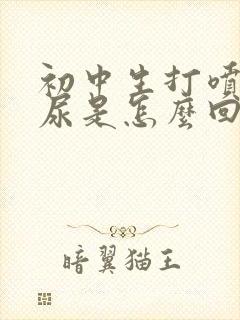 初中生打噴
尿是怎麼回
暗翼猫王